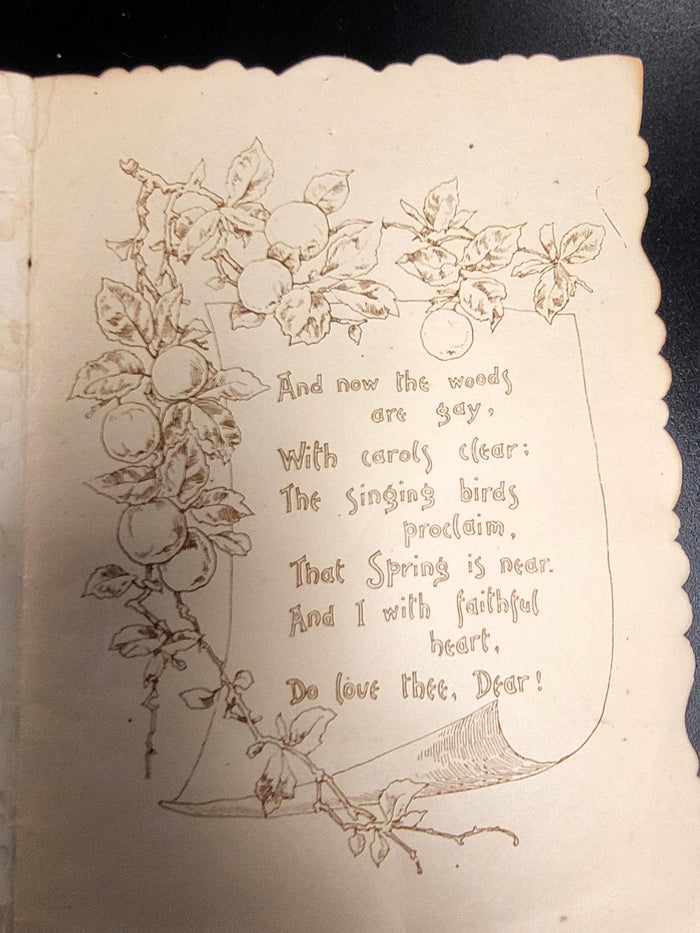 And now the woods
are gay,
With carols clear;
The singing birds
proclaim,
That Spring is near.
And I with faithful
heart,
Do love thee, Dear!